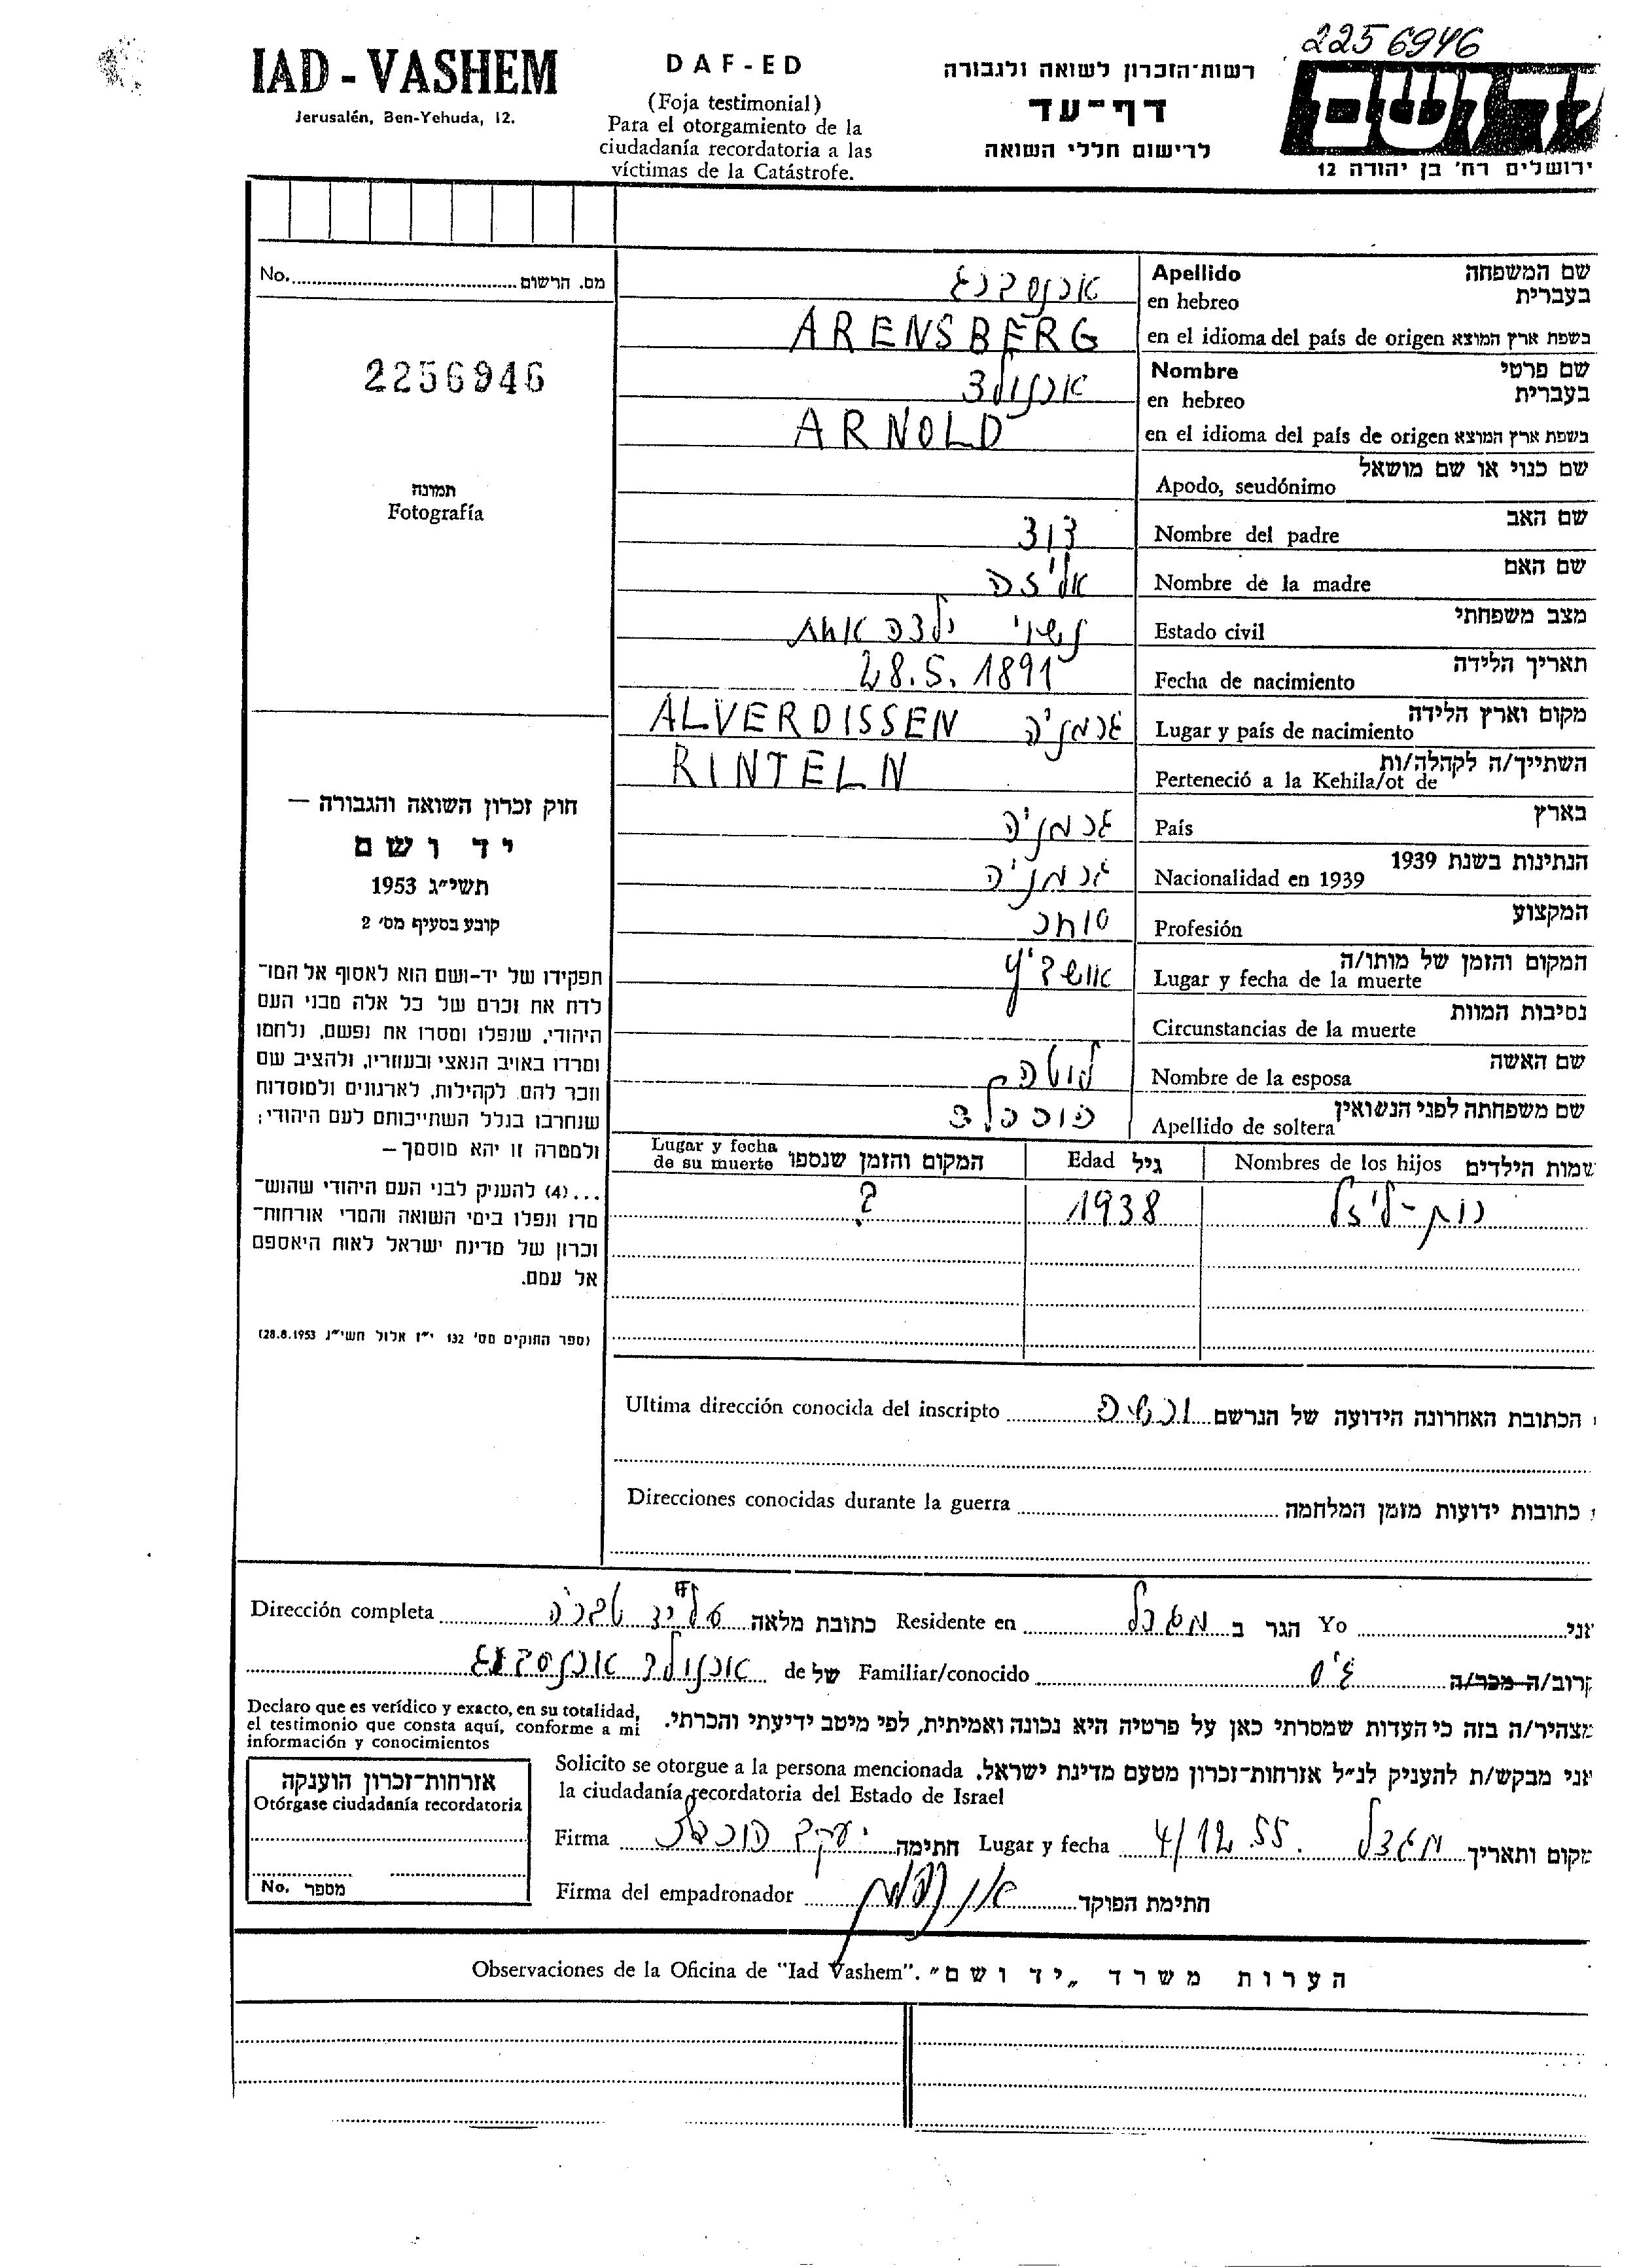 2256946
IAD - VASHEM
Jerusalén, Ben-Yehuda, 12.
DAF-ED
(Foja testimonial)
Para el otorgamiento de la
ciudadanía recordatoria a las
víctimas de la Catástrofe.
רשות־הזכרון לשואה ולגבורה
דף־עד
לרישום חללי השואה
ידושם
ירושלים רח' בן יהודה 12
No. מס. הרשום
2256946
תמונה
Fotografía
שם המשפחה Apellido
בעברית en hebreo ארנסברג
בשפת ארץ המוצא en el idioma del país de origen ARENSBERG
שם פרטי Nombre
בעברית en hebreo ארנולד
בשפת ארץ המוצא en el idioma del país de origen ARNOLD
שם כנוי או שם מושאל Apodo, seudónimo
שם האב Nombre del padre דוד
שם האם Nombre de la madre אליזה
מצב משפחתי Estado civil נשוי ילדה אחת
תאריך הלידה Fecha de nacimiento 28.5.1891
מקום וארץ הלידה Lugar y país de nacimiento גרמניה ALVERDISSEN
השתייך/ה לקהלה/ות Perteneció a la Kehila/ot de RINTELN
בארץ País גרמניה
הנתינות בשנת 1939 Nacionalidad en 1939 גרמניה
המקצוע Profesión סוחר
המקום והזמן של מותו/ה Lugar y fecha de la muerte אושביץ
נסיבות המוות Circunstancias de la muerte
שם האשה Nombre de la esposa
שם משפחתה לפני הנשואין Apellido de soltera
שמות הילדים Nombres de los hijos גיל Edad המקום והזמן שנספו Lugar y fecha de su muerte
רות-ליזל 1938 ?
חוק זכרון השואה והגבורה —
יד ושם
תשי״ג 1953
קובע בסעיף מס׳ 2
תפקידו של יד-ושם הוא לאסוף אל המו־
לדת את זכרם של כל אלה מבני העם
היהודי, שנפלו ומסרו את נפשם, נלחמו
ומרדו באויב הנאצי ובעוזריו, ולהציב שם
וזכר להם, לקהילות, לארגונים ולמוסדות
שנחרבו בגלל השתייכותם לעם היהודי;
ולמטרה זו יהא מוסמך —
...(4) להעניק לבני העם היהודי שהוש־
מדו ונפלו בימי השואה והמרי אזרחות־
זכרון של מדינת ישראל לאות היאספם
אל עמם.
(ספר החוקים מס׳ 132 י״ז אלול תשי״ג 28.8.1953)
הכתובת האחרונה הידועה של הנרשם Ultima dirección conocida del inscripto
כתובות ידועות מזמן המלחמה Direcciones conocidas durante la guerra
אני Yo הגר ב מגדל Residente en כתובת מלאה טבריה Dirección completa
קרוב/ה מכר/ה גיס Familiar/conocido של de ארנולד ארנסברג
מצהיר/ה בזה כי העדות שמסרתי כאן על פרטיה היא נכונה ואמיתית, לפי מיטב ידיעתי והכרתי.
Declaro que es verídico y exacto, en su totalidad,
el testimonio que consta aquí, conforme a mi
información y conocimientos
אני מבקש/ת להעניק לנ״ל אזרחות־זכרון מטעם מדינת ישראל.
Solicito se otorgue a la persona mencionada
la ciudadanía recordatoria del Estado de Israel
מקום ותאריך מגדל 4/12 55. Lugar y fecha חתימה יעקב Firma
חתימת הפוקד Firma del empadronador
אזרחות־זכרון הוענקה
Otórgase ciudadanía recordatoria
No. מספר
Observaciones de la Oficina de "Iad Vashem". הערות משרד „יד ושם"